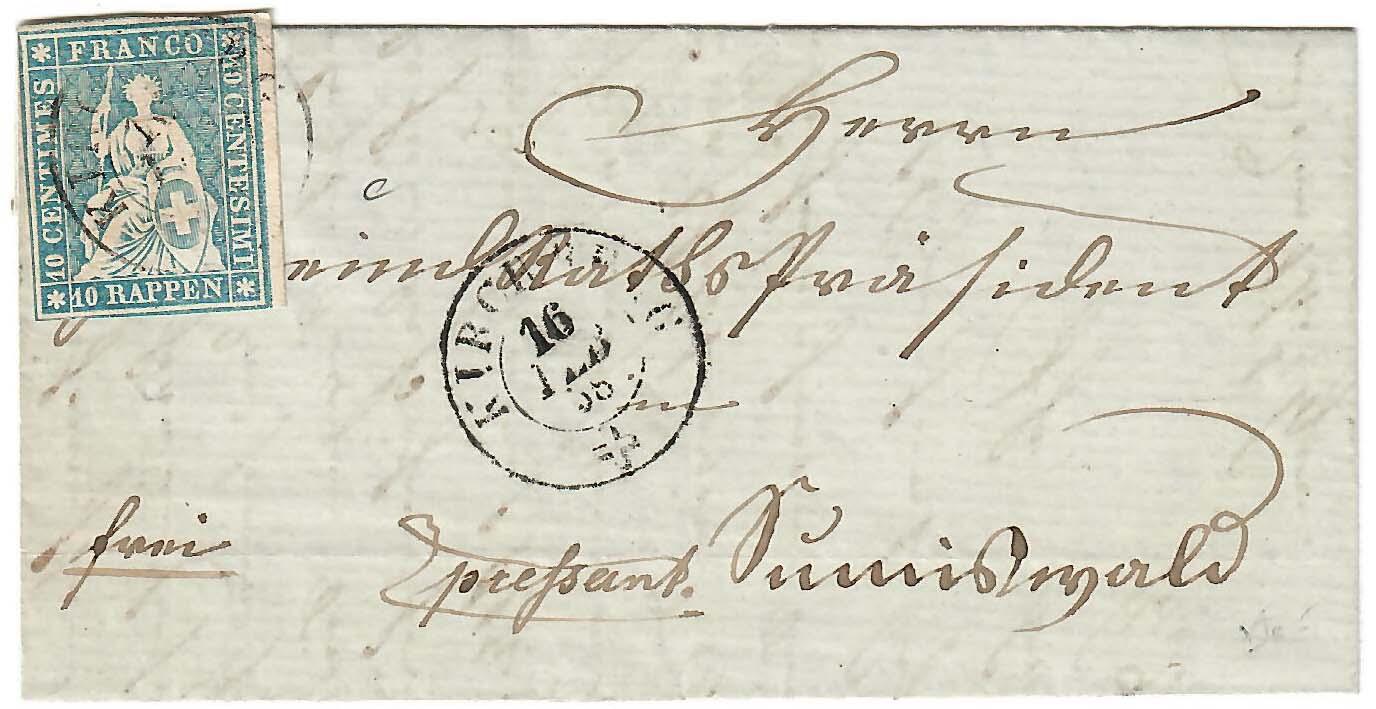 FRANCO
10 CENTIMES
10 CENTESIMI
10 RAPPEN
Herrn
eindRathsPräsident
KIRCHBERG
16
FEB
58
in
frei
pressant. Sumiswald